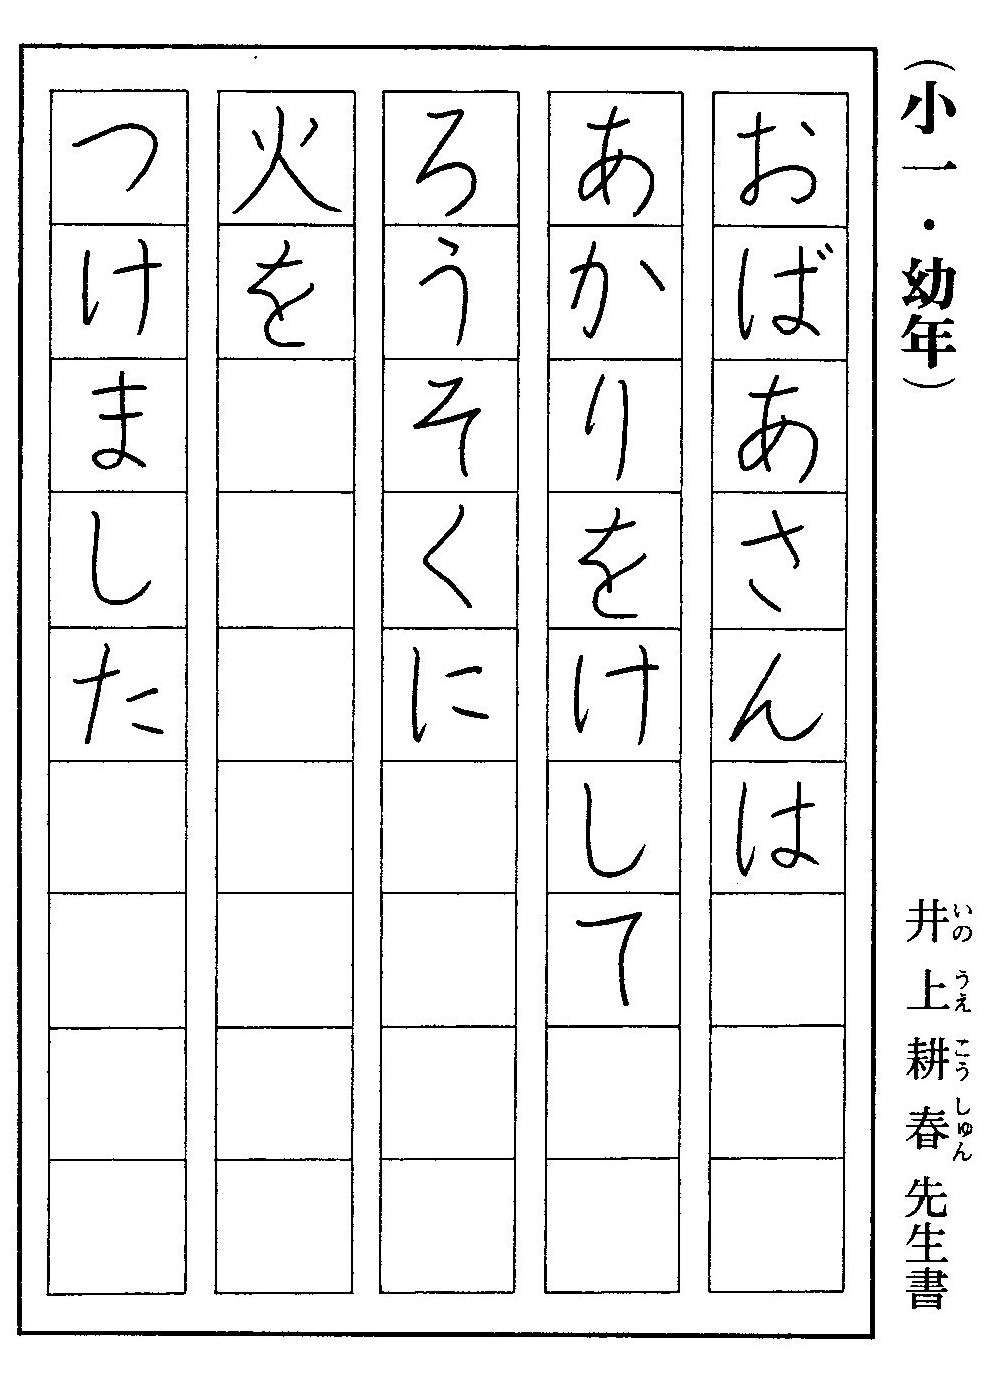 （小一・幼年）
井上耕春先生書
いのうえこうしゅん
おばあさんは
あかりをけして
ろうそくに
火を
つけました